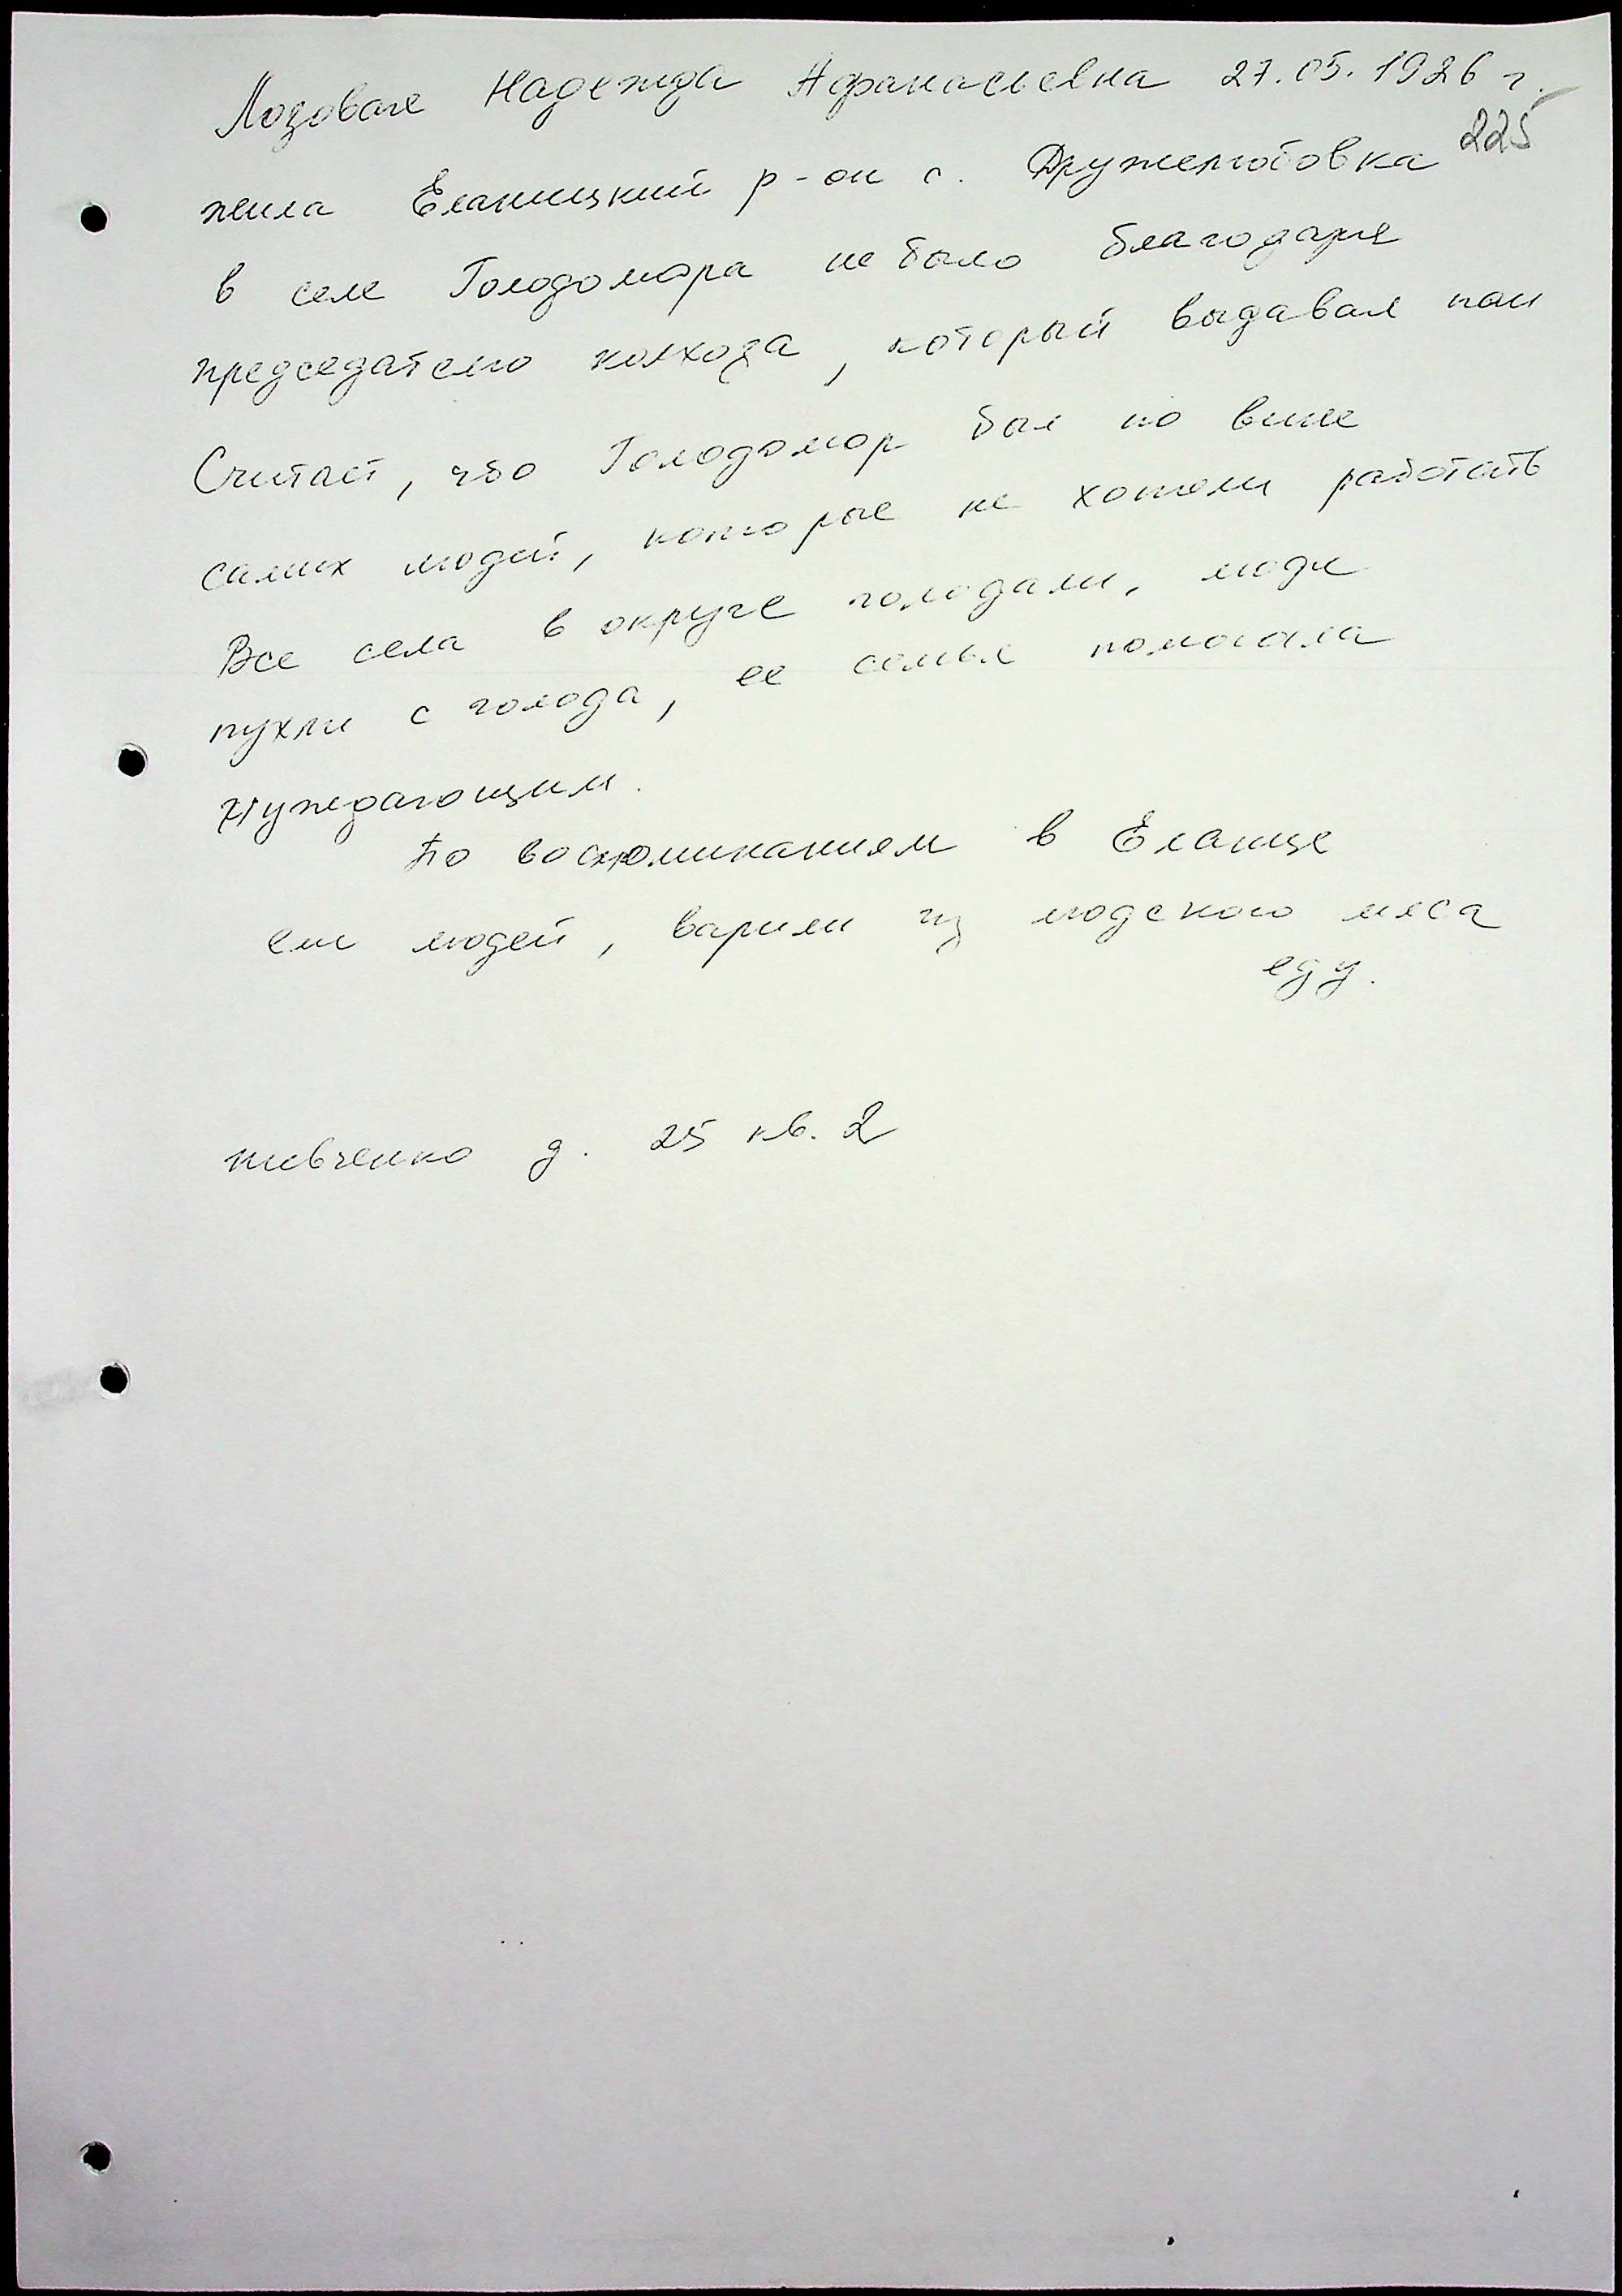 Лозовая Надежда Афанасьевна 27.05.1926 г.
225
жила Еланецкий р-он с. Дружелюбовка
в селе Голодомора не было благодаря
председателю колхоза, который выдавал паи
Считает, что Голодомор был по вине
самих людей, которые не хотели работать
Все села в округе голодали, люди
пухли с голода, ее семья помогала
нуждающим.
По воспоминаниям в Еланце
ели людей, варили из людского мяса
еду.
Шевченко д. 25 кв. 2